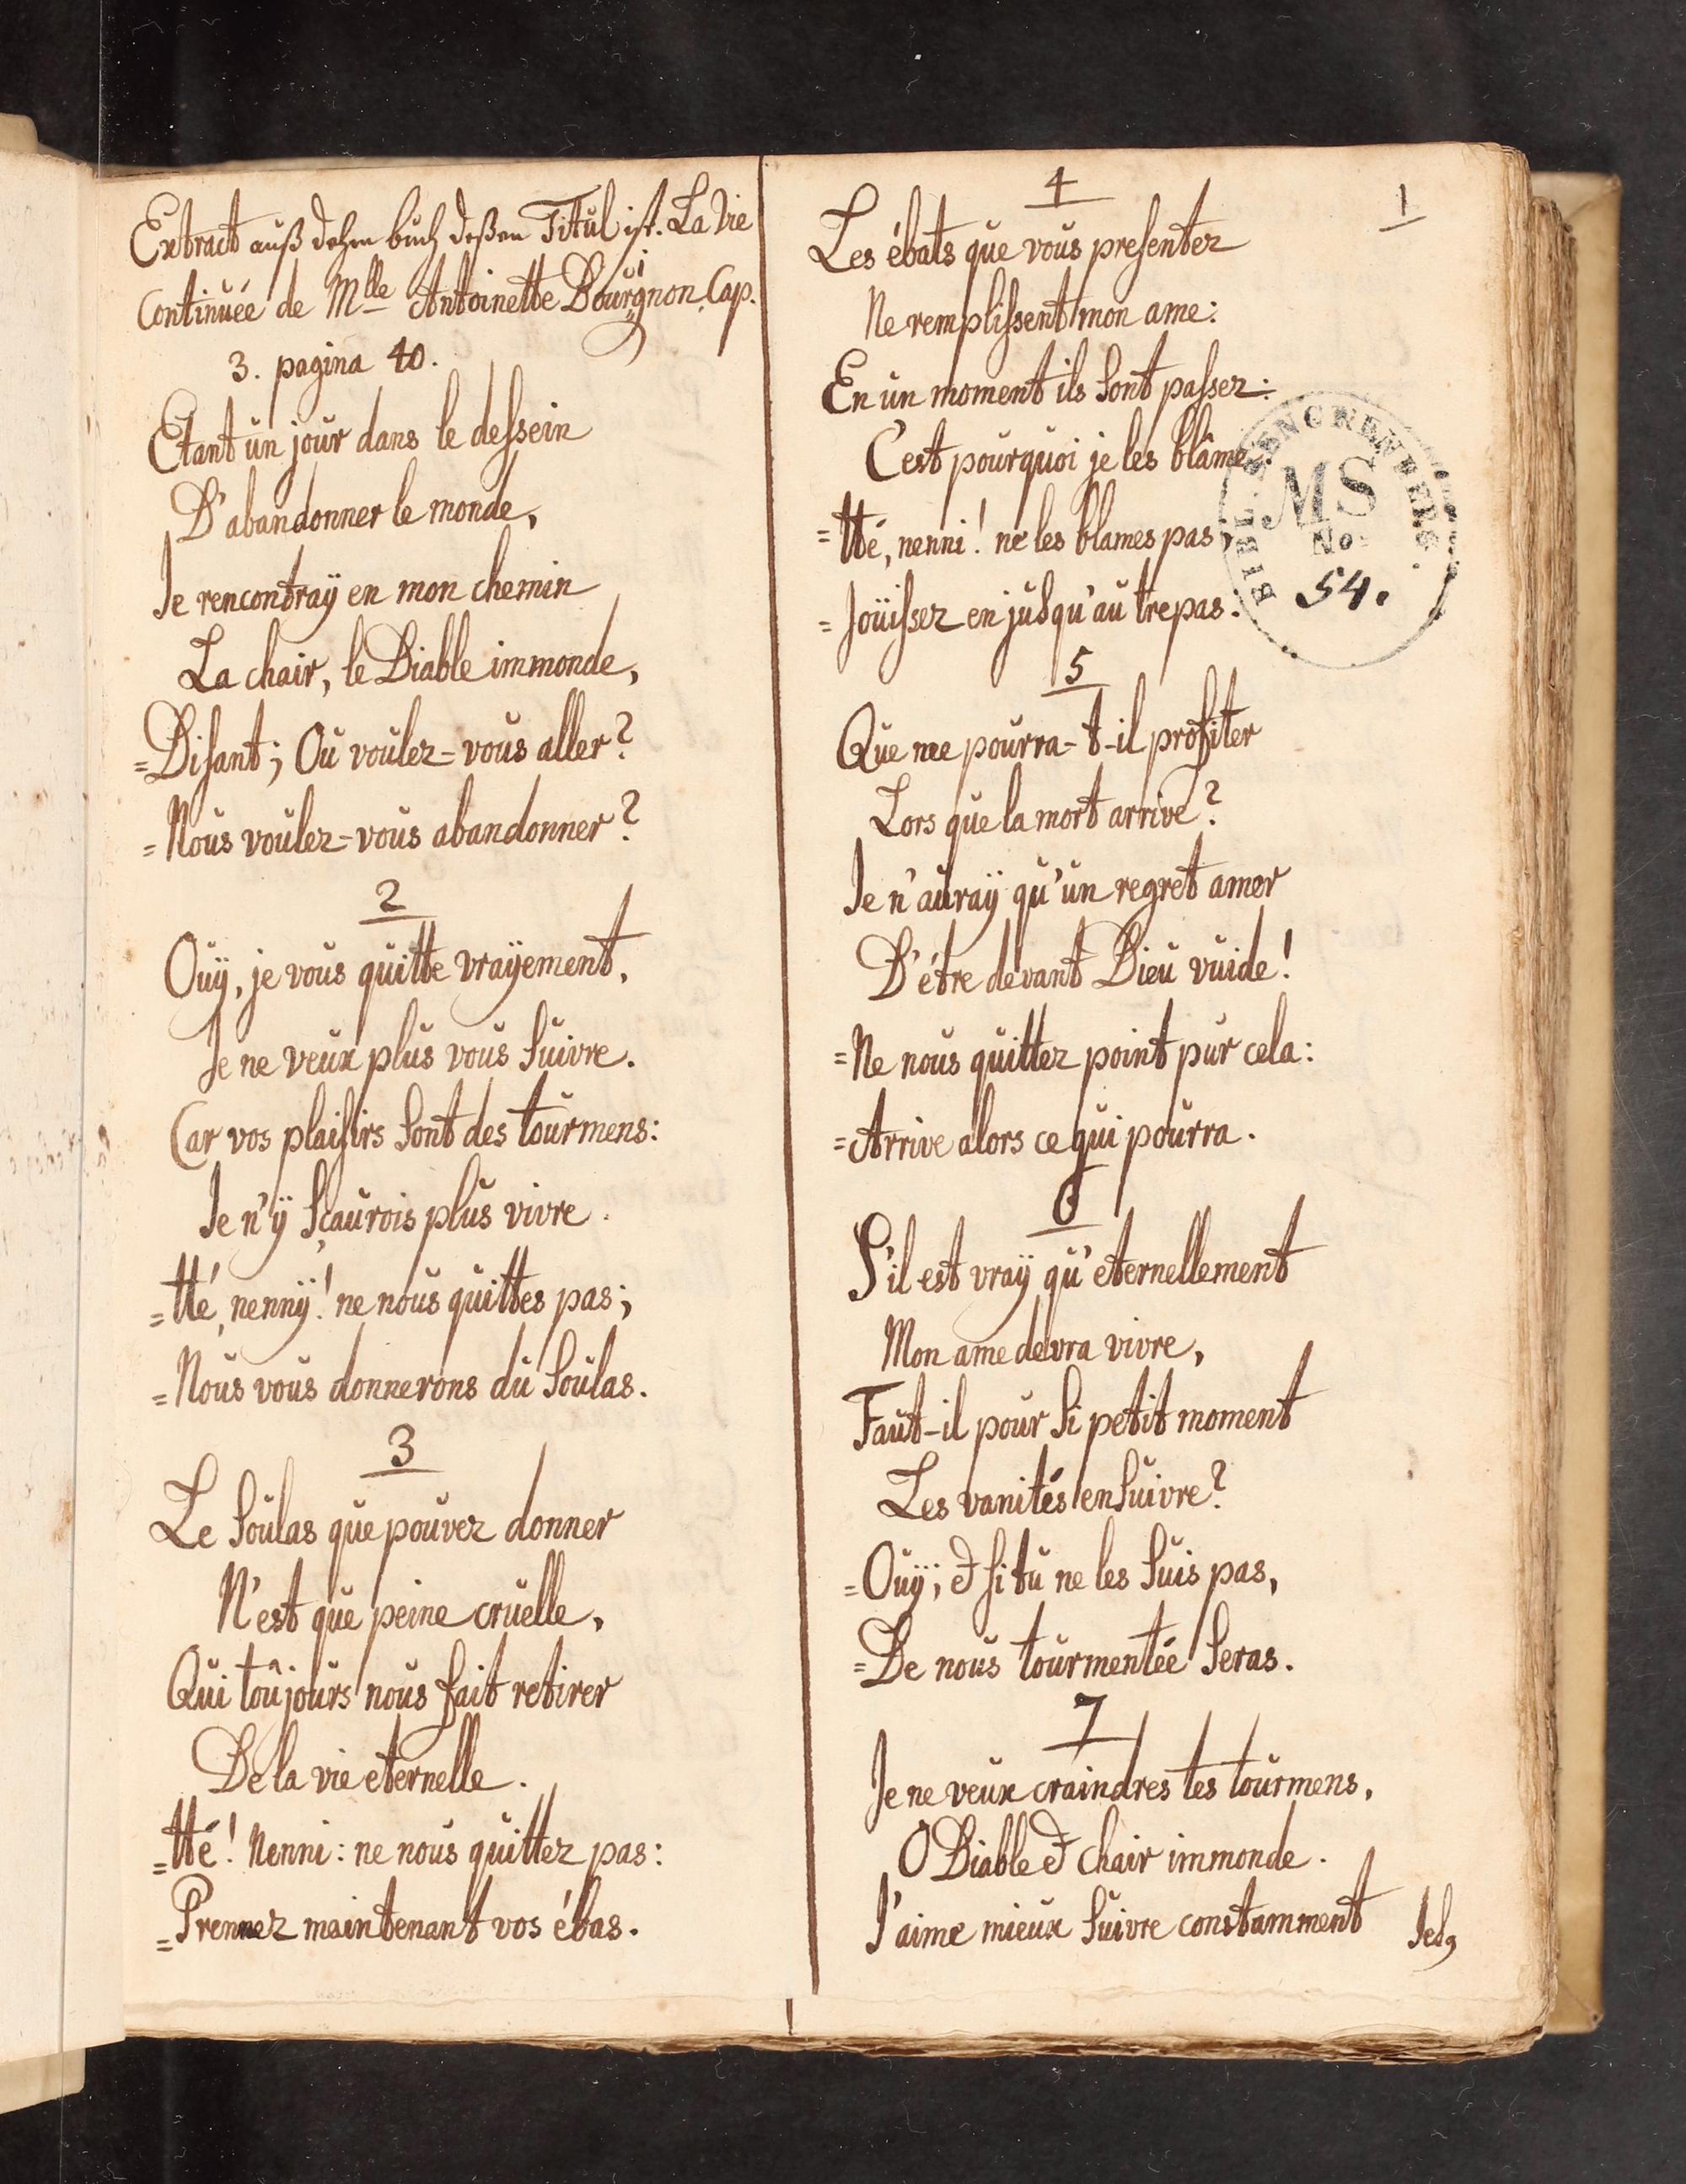 Extract auß dehm buch deßen Titul ist. La Vie
Continuée de Mlle Antoinette Bourignon. Cap.
3. pagina 40.
Etant un jour dans le dessein
D'abandonner le monde,
Je rencontraÿ en mon chemin
La chair, le Diable immonde,
=Disant; Ou voulez=vous aller?
=Nous voulez=vous abandonner?
2
Ouÿ, je vous quitte vraÿement,
Je ne veux plus vous suivre.
Car vos plaisirs sont des tourmens:
Je n'ÿ sçaurois plus vivre.
=Hé, nennÿ! ne nous quittes pas;
=Nous vous donnerons du soulas.
3
Le soulas que pouvez donner
N'est que peine cruelle,
Qui toûjours nous fait retirer
De la vie eternelle.
=Hé! Nenni: ne nous quittez pas:
=Prennez maintenant vos ébas.
1
4
Les ébats que vous presentez
Ne remplissent mon ame:
En un moment ils sont passez:
C'est pourquoi je les blâme.
=Hé, nenni! ne les blames pas
=Joüissez en jusqu'au trepas.
5
Que me pourra-t-il profiter
Lors que la mort arrive?
Je n'auraÿ qu'un regret amer
D'étre devant Dieu vuide!
=Ne nous quittez point pur cela:
=Arrive alors ce qui pourra.
6
S'il est vraÿ qu'eternellement
Mon ame devra vivre,
Faut-il pour si petit moment
Les vanités ensuivre?
=Ouÿ; & si tu ne les suis pas,
=De nous tourmentée seras.
7
Je ne veux craindres tes tourmens,
O Diable & chair immonde.
J'aime mieux suivre constamment
BIBL. RENGRENBERG.
MS
No.
54.